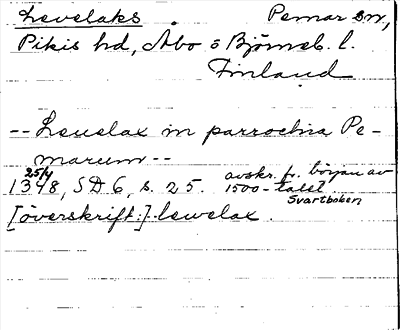 Levelaks. Pemar sn,
Pikis hd, Åbo o Björneb. l.
Finland
-- Leuelax in parrochia Pe-
marum --
25/4
1348, SD 6, s. 25. avskr. fr. början av
1500-talet
Svartboken
[överskrift:] lewelax.